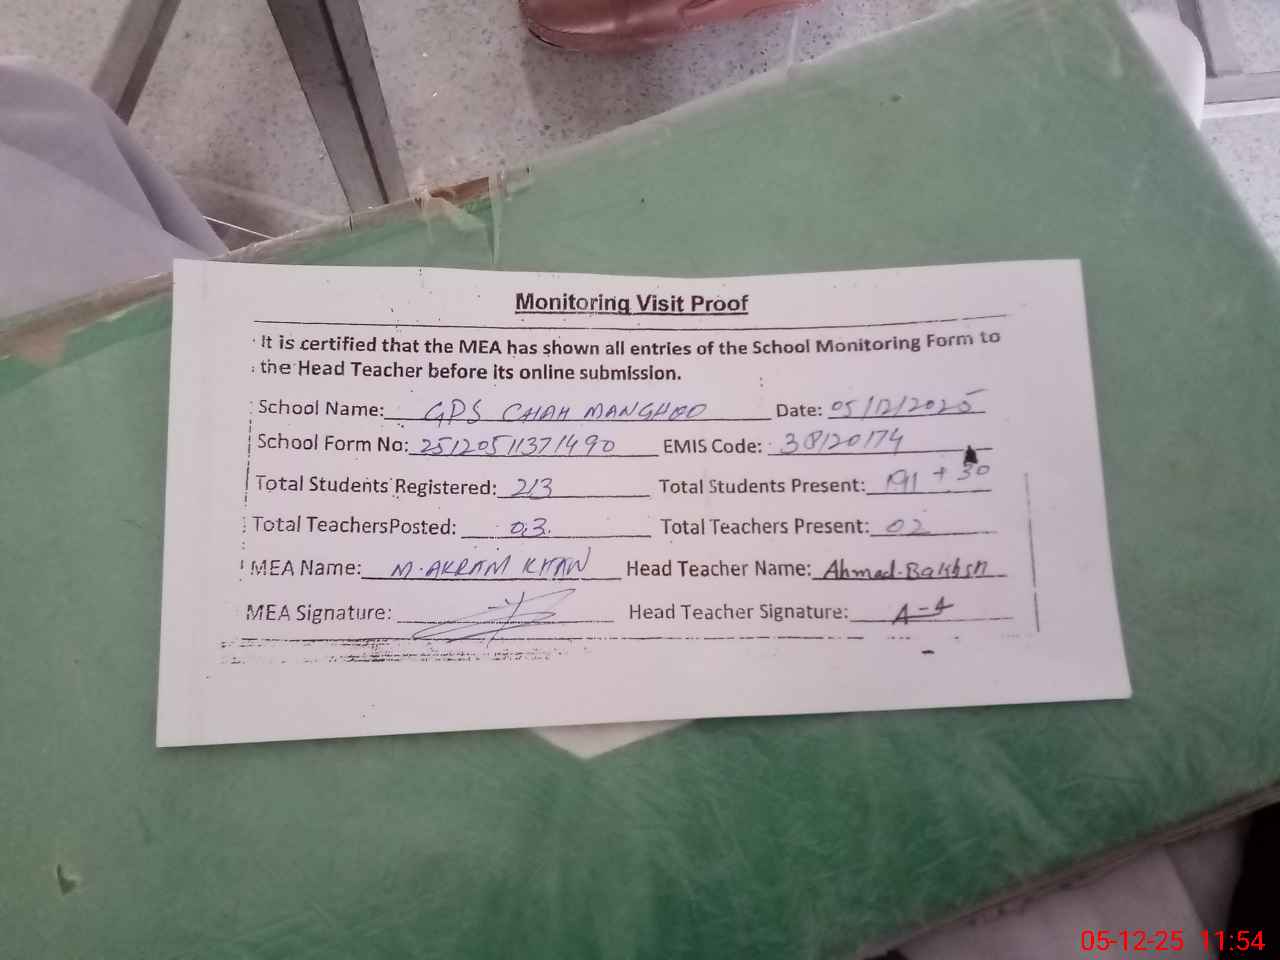 Monitoring Visit Proof
It is certified that the MEA has shown all entries of the School Monitoring Form to
the Head Teacher before its online submission.
School Name: GPS CHAH MANGHOO Date: 05/12/2025
School Form No: 25120511371490 EMIS Code: 38120174
Total Students Registered: 213 Total Students Present: 191 + 30
Total TeachersPosted: 03. Total Teachers Present: 02
MEA Name: M. AKRAM KHAN Head Teacher Name: Ahmad. Bakhsh
MEA Signature: Head Teacher Signature: A-A
05-12-25 11:54